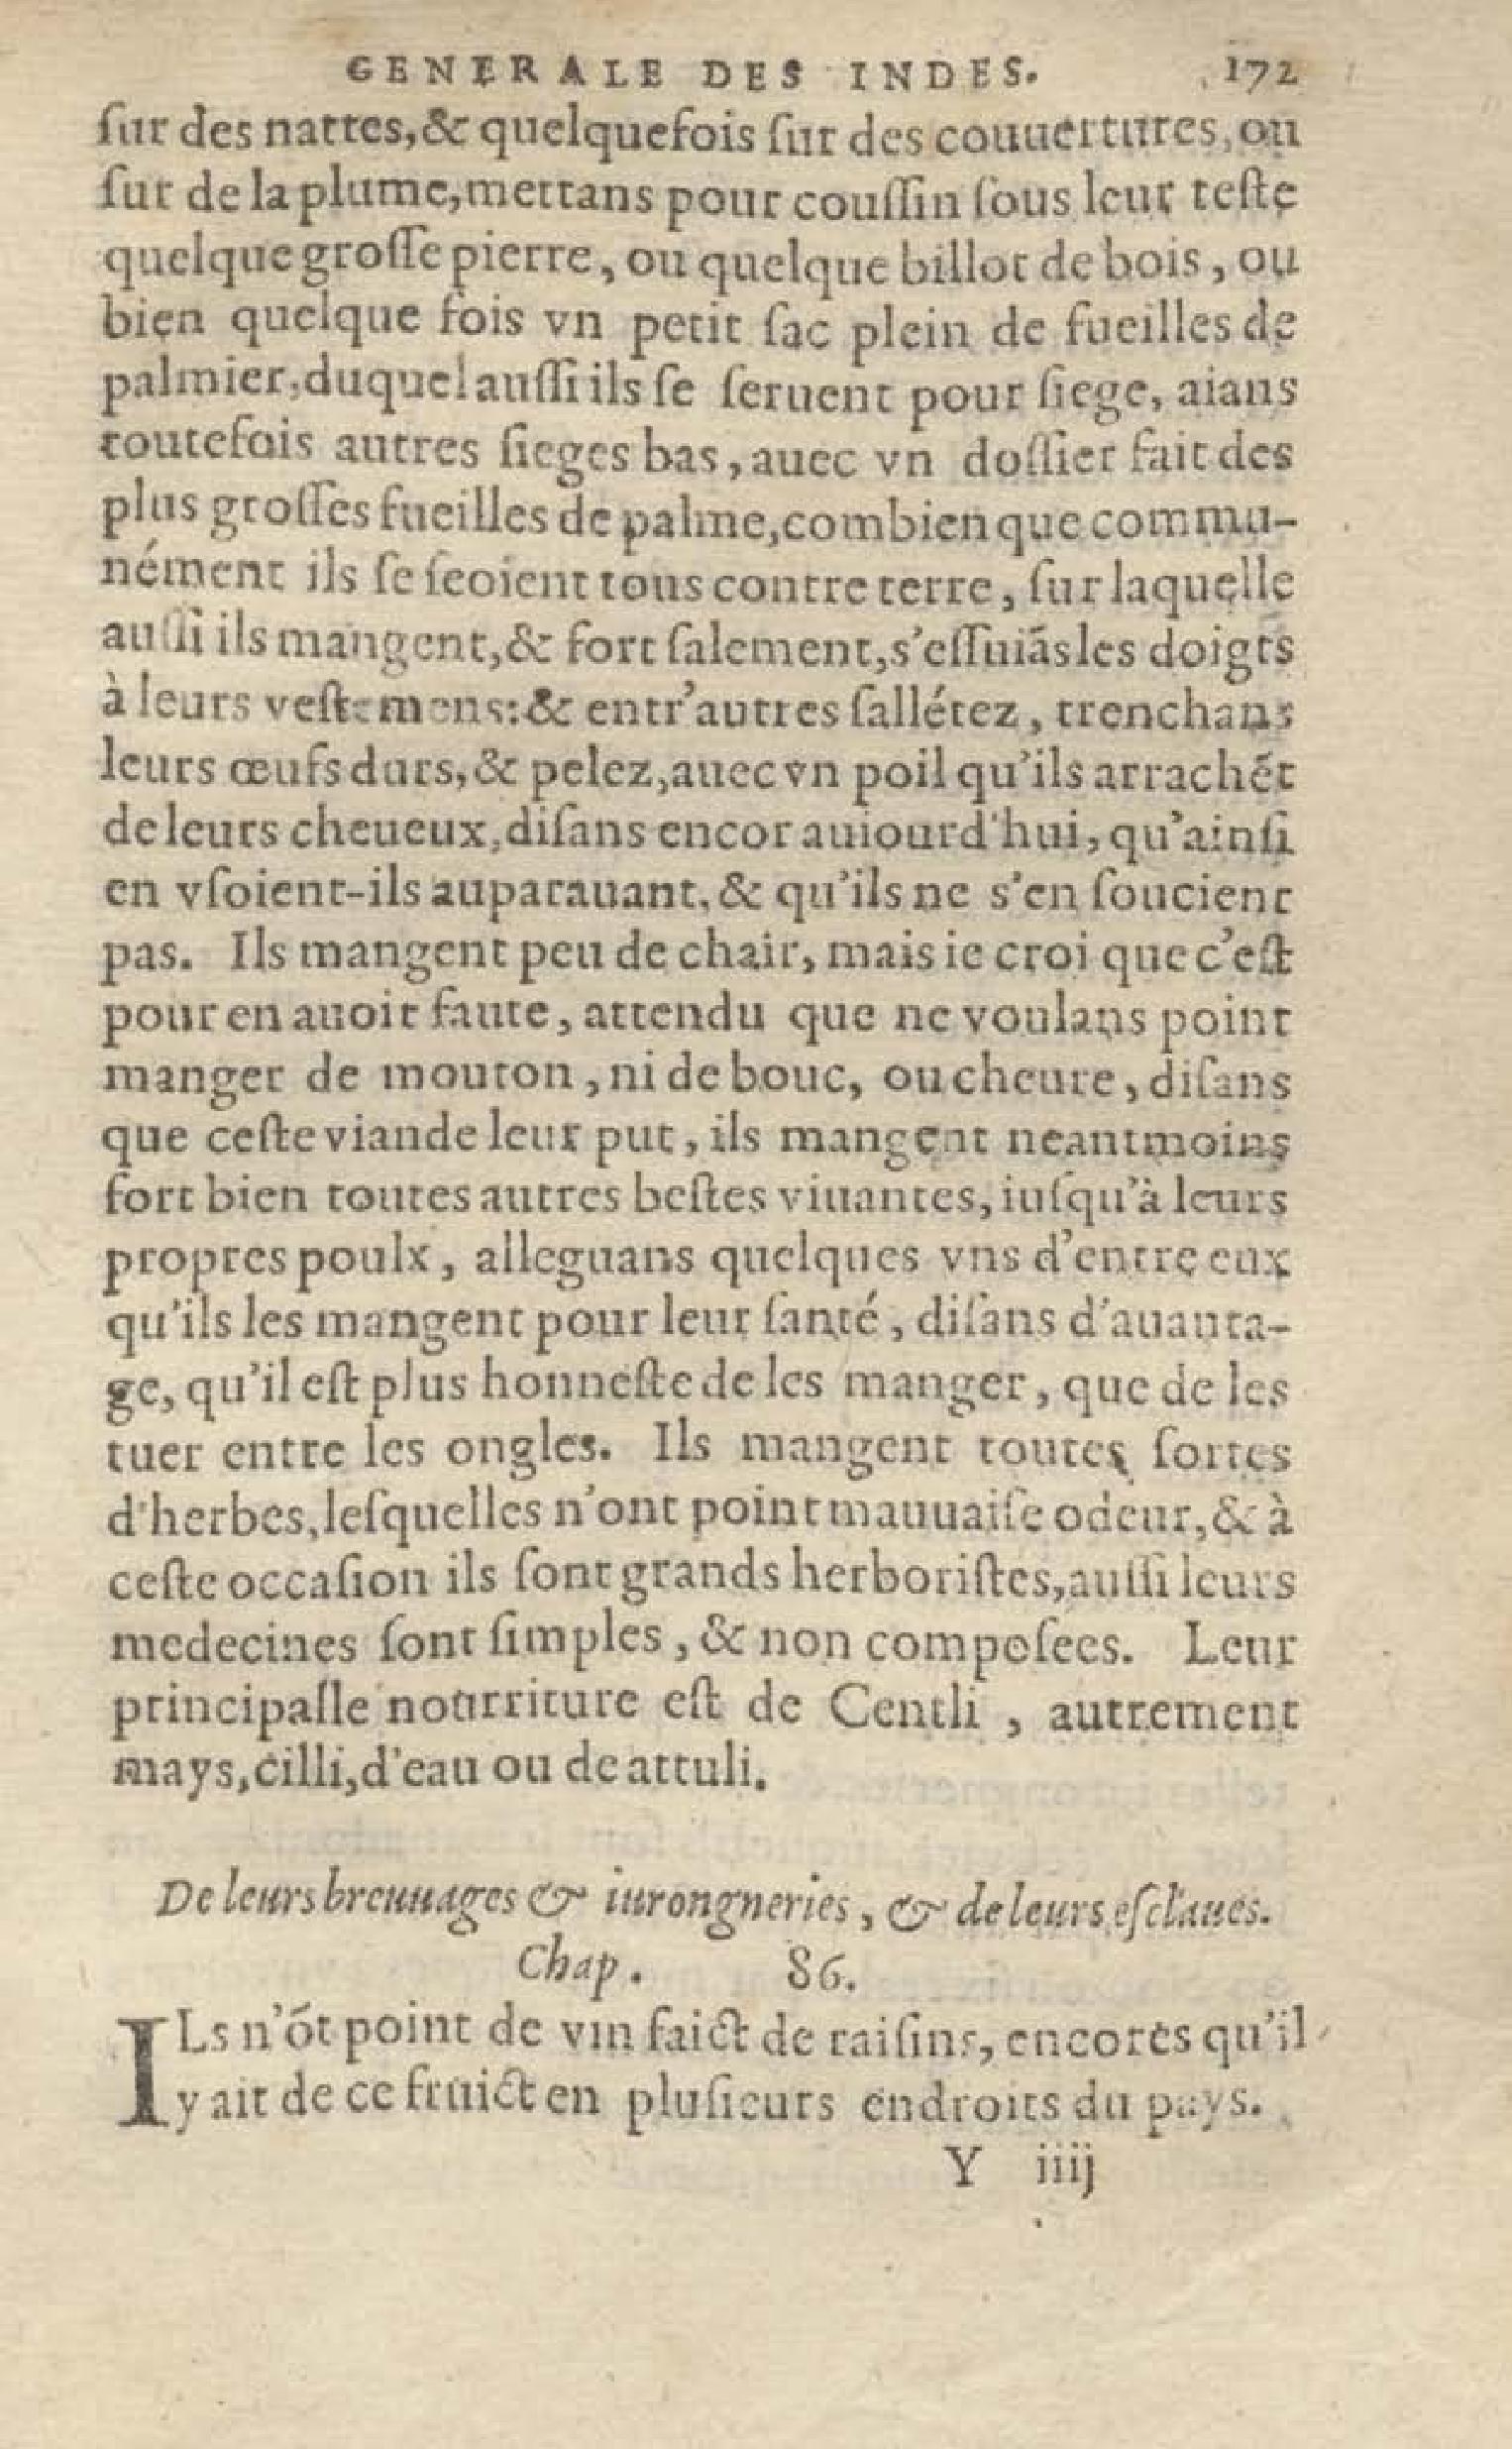 GENERALE DES INDES. 172
ſur des nattes, & quelquefois ſur des couuertures, ou
ſur de la plume, mettans pour couſſin ſous leur teſte
quelque groſſe pierre, ou quelque billot de bois, ou
bien quelque fois vn petit ſac plein de fueilles de
palmier, duquel auſſi ils ſe ſeruent pour ſiege, aians
toutefois autres ſieges bas, auec vn doſſier fait des
plus groſſes fueilles de palme, combien que commu-
nément ils ſe ſeoient tous contre terre, ſur laquelle
auſſi ils mangent, & fort ſalement, s'eſſuiãs les doigts
à leurs veſtemens: & entr'autres ſallétez, trenchans
leurs œufs durs, & pelez, auec vn poil qu'ils arrachẽt
de leurs cheueux, diſans encor auiourd'hui, qu'ainſi
en vſoient-ils auparauant, & qu'ils ne s'en ſoucient
pas. Ils mangent peu de chair, mais ie croi que c'eſt
pour en auoir faute, attendu que ne voulans point
manger de mouton, ni de bouc, ou cheure, diſans
que ceſte viande leur put, ils mangent neantmoins
fort bien toutes autres beſtes viuantes, iuſqu'à leurs
propres poulx, alleguans quelques vns d'entre eux
qu'ils les mangent pour leur ſanté, diſans d'auanta-
ge, qu'il eſt plus honneſte de les manger, que de les
tuer entre les ongles. Ils mangent toutes ſortes
d'herbes, leſquelles n'ont point mauuaiſe odeur, & à
ceſte occaſion ils ſont grands herboriſtes, auſſi leurs
medecines ſont ſimples, & non compoſees. Leur
principalle nourriture eſt de Centli, autrement
mays, cilli, d'eau ou de attuli.
De leurs breuuages & iurongneries, & de leurs eſclaues.
Chap. 86.
ILs n'õt point de vin faict de raiſins, encores qu'il
y ait de ce fruict en pluſieurs endroits du pays.
Y iiij